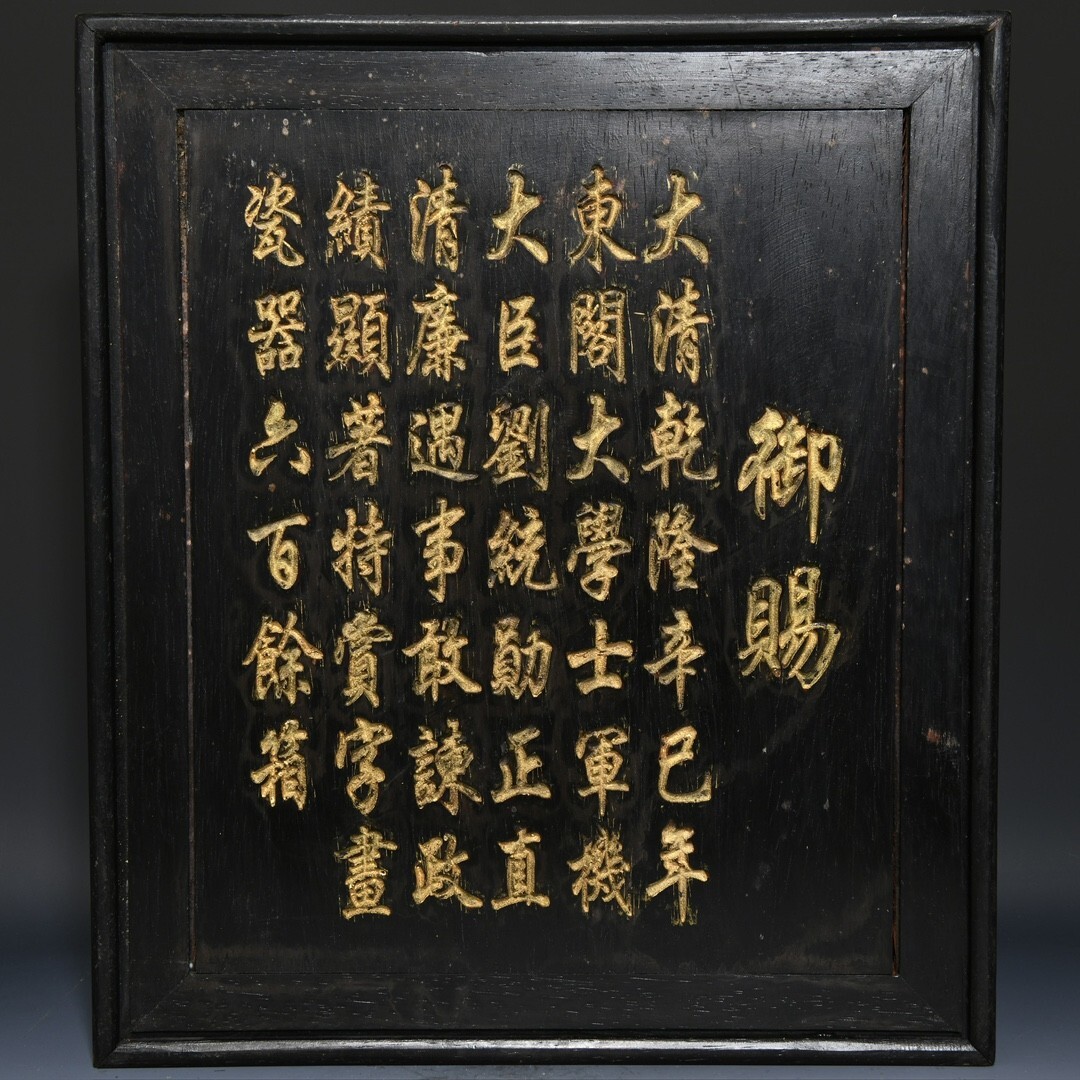 御賜
大清乾隆辛巳年
東閣大學士軍機
大臣劉統勛正直
清廉遇事敢諫政
績顯著特賞字畫
瓷器六百餘箱